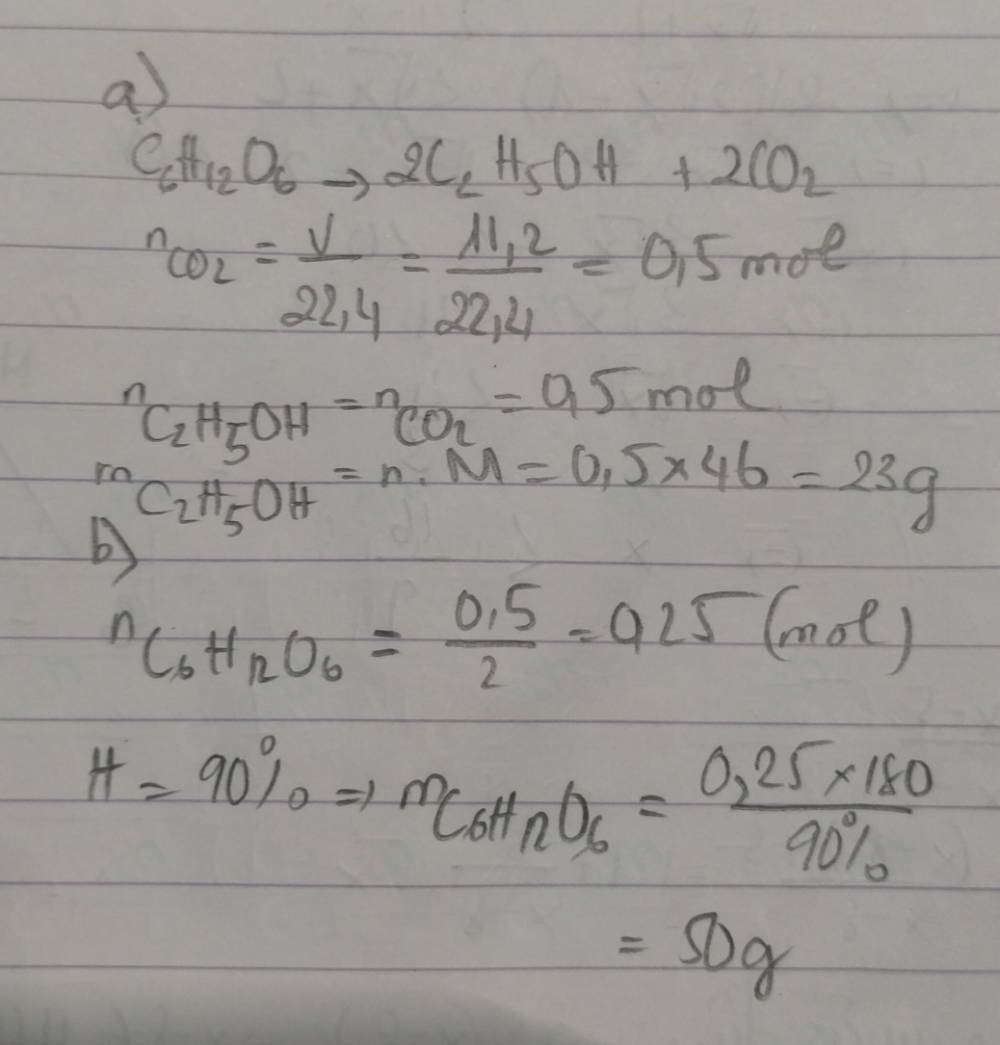 a)
C₆H₁₂O₆ → 2C₂H₅OH + 2CO₂
nCO₂ = V/22,4 = 11,2/22,4 = 0,5 mol
nC₂H₅OH = nCO₂ = 0,5 mol
mC₂H₅OH = n. M = 0,5 x 46 = 23g
b)
nC₆H₁₂O₆ = 0,5/2 = 0,25 (mol)
H = 90% => mC₆H₁₂O₆ = 0,25 x 180/90%
= 50g